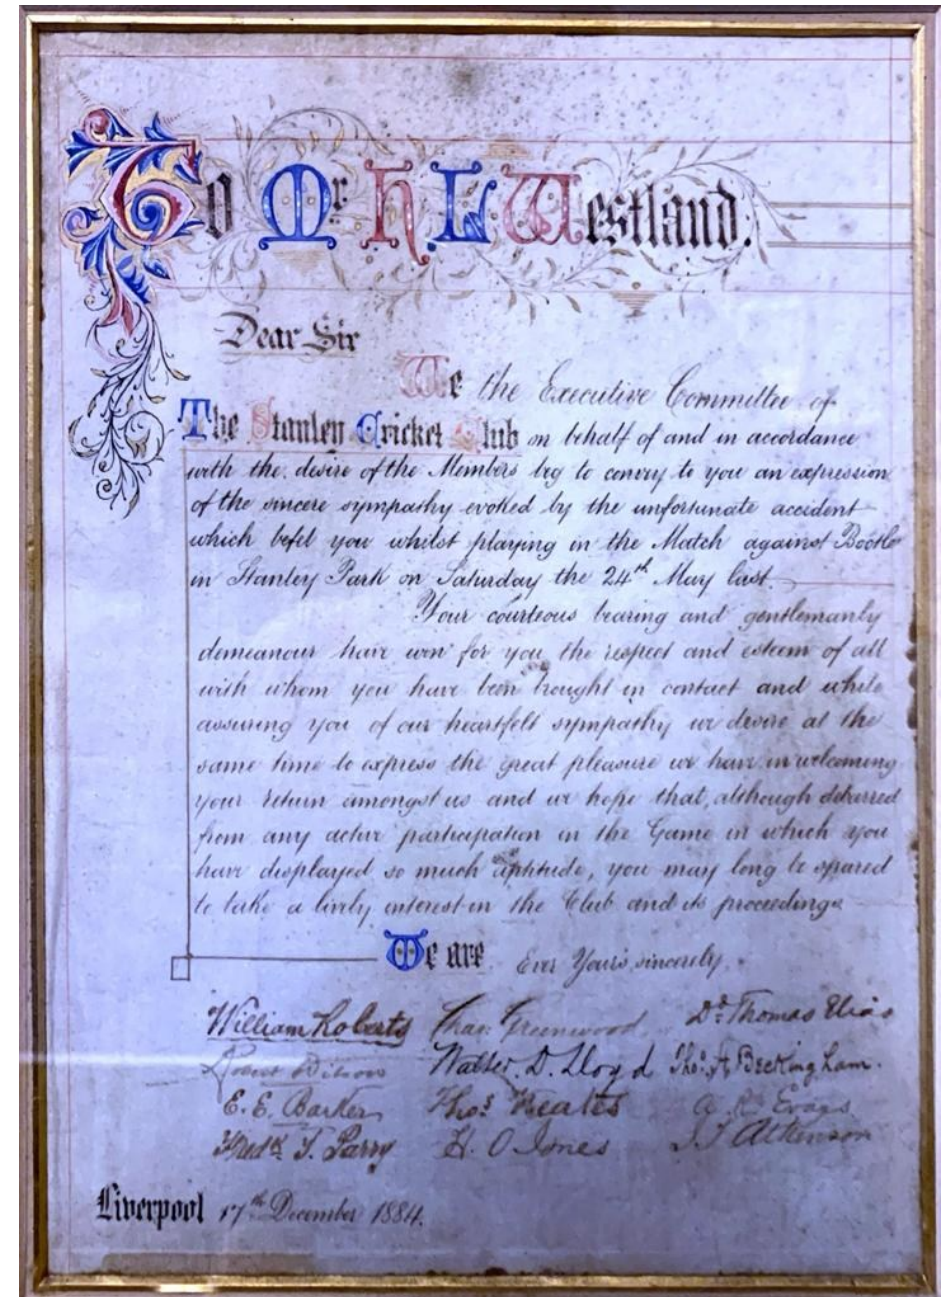 To Mr H. L. Westland.
Dear Sir
We the Executive Committee of
The Stanley Cricket Club on behalf of and in accordance
with the desire of the Members beg to convey to you an expression
of the sincere sympathy evoked by the unfortunate accident
which befel you whilst playing in the Match against Bootle
in Stanley Park on Saturday the 24th May last
Your courteous bearing and gentlemanly
demeanour have won for you the respect and esteem of all
with whom you have been brought in contact and while
assuring you of our heartfelt sympathy we desire at the
same time to express the great pleasure we have in welcoming
your return amongst us and we hope that, although debarred
from any active participation in the Game in which you
have displayed so much aptitude, you may long be spared
to take a lively interest in the Club and its proceedings
We are Ever Yours sincerely
William Roberts Chas. Greenwood Dd. Thomas Elias
Walter. D. Lloyd Thos. A. Beckingham.
E. E. Barker Thos Neales A. R. Evans
Fredk T. Parry H. O Jones J. T Atkinson
Liverpool 17th December 1884.